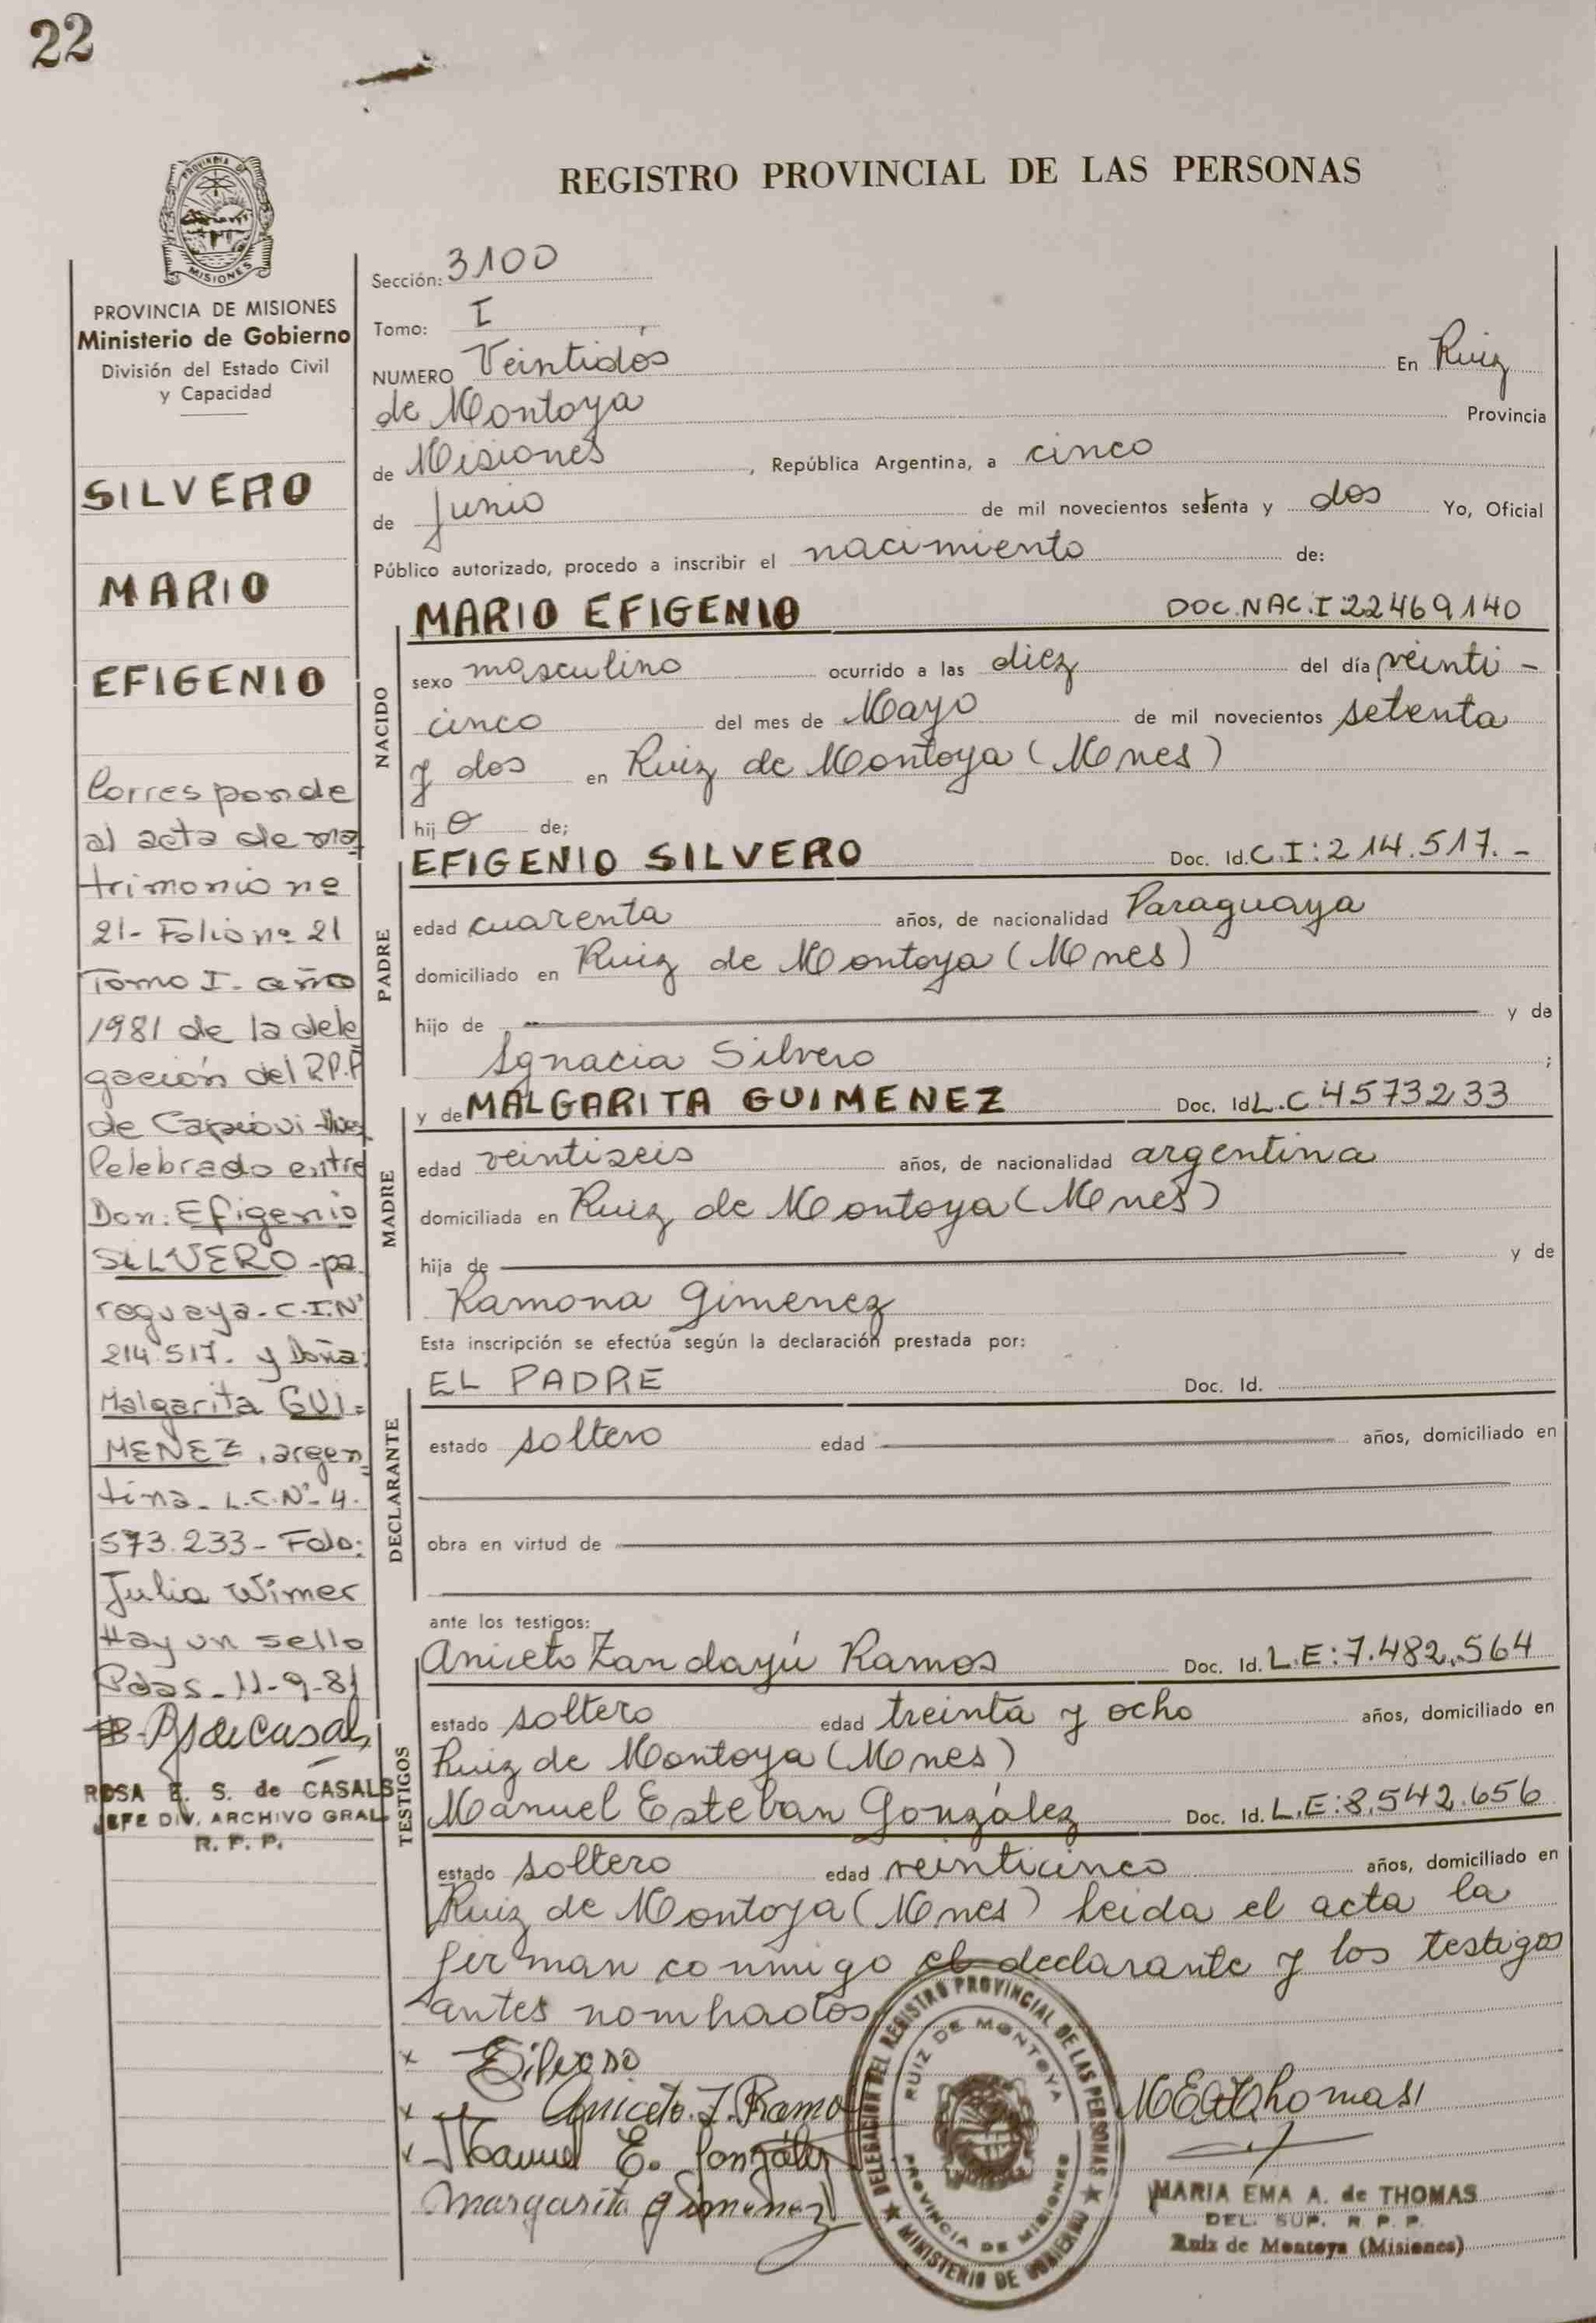 22
REGISTRO PROVINCIAL DE LAS PERSONAS
PROVINCIA DE
MISIONES
PROVINCIA DE MISIONES
Ministerio de Gobierno
División del Estado Civil
y Capacidad
SILVERO
MARIO
EFIGENIO
Corresponde
al acta de ma
trimonio nº
21- Folio nº 21
Tomo I- año
1981 de la dele
gación del R.P.P
de Capiovi-Mnes
Celebrado entre
Don: Efigenio
SILVERO-pa
raguaya-C.I.Nº
214.517- y Doña:
Malgarita GUI=
MENEZ, argen
tina- L.C.Nº-4.
573.233- Fdo:
Julia Wimer
Hay un sello
Pdas-11-9-81
ROSA E. S. de CASALS
JEFE DIV. ARCHIVO GRAL
R. P. P.
Sección: 3100
Tomo: I
NUMERO Veintidós En Ruiz
de Montoya Provincia
de Misiones, República Argentina, a cinco
de Junio de mil novecientos setenta y dos Yo, Oficial
Público autorizado, procedo a inscribir el nacimiento de:
NACIDO
MARIO EFIGENIO DOC.NAC.I 22469140
sexo masculino ocurrido a las diez del día veinti-
cinco del mes de Mayo de mil novecientos setenta
y dos en Ruiz de Montoya (Mnes)
hijo de;
PADRE
EFIGENIO SILVERO Doc. Id. C.I:214.517.-
edad cuarenta años, de nacionalidad Paraguaya
domiciliado en Ruiz de Montoya (Mnes)
hijo de y de
Ignacia Silvero ;
MADRE
y de MALGARITA GUIMENEZ Doc. Id L.C 4573233
edad veintiseis años, de nacionalidad argentina
domiciliada en Ruiz de Montoya (Mnes)
hija de y de
Ramona Gimenez
Esta inscripción se efectúa según la declaración prestada por:
DECLARANTE
EL PADRE Doc. Id.
estado soltero edad años, domiciliado en
obra en virtud de
ante los testigos:
TESTIGOS
Aniceto Zandayú Ramos Doc. Id. L.E:7.482.564
estado soltero edad treinta y ocho años, domiciliado en
Ruiz de Montoya (Mnes)
Manuel Esteban González Doc. Id. L.E:8.542.656
estado soltero edad veinticinco años, domiciliado en
Ruiz de Montoya (Mnes) leida el acta la
firman conmigo el declarante y los testigos
antes nombrados
x Silvero
x Aniceto Z. Ramo
x Manuel E. González
Margarita Gimenez
DELEGACION DEL REGISTRO PROVINCIAL DE LAS PERSONAS
MINISTERIO DE GOBIERNO
RUIZ DE MONTOYA
PROVINCIA DE MISIONES
MEAThomas
MARIA EMA A. de THOMAS
DEL. SUP. R. P. P.
Ruiz de Montoya (Misiones)